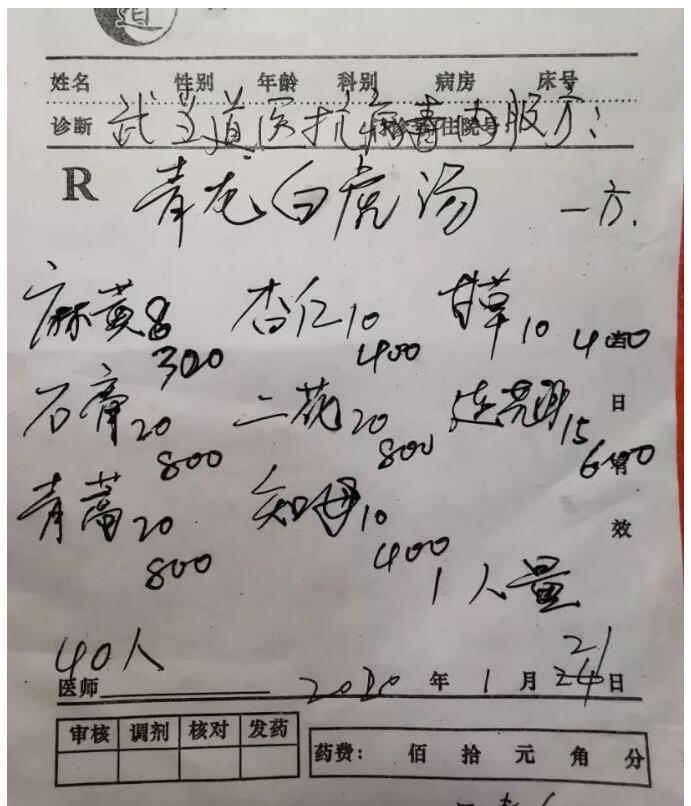 道
姓名 性别 年龄 科别 病房 床号
诊断 武当道医抗病毒内服方:
R 青龙白虎汤 一方.
麻黄8 杏仁10 甘草10
320 400 400
石膏20 二花20 连翘15 日
800 800 600
青蒿20 知母10 效
800 400
1人量
40人
医师 2020 年 1 月 21 日
审核 调剂 核对 发药
药费: 佰 拾 元 角 分